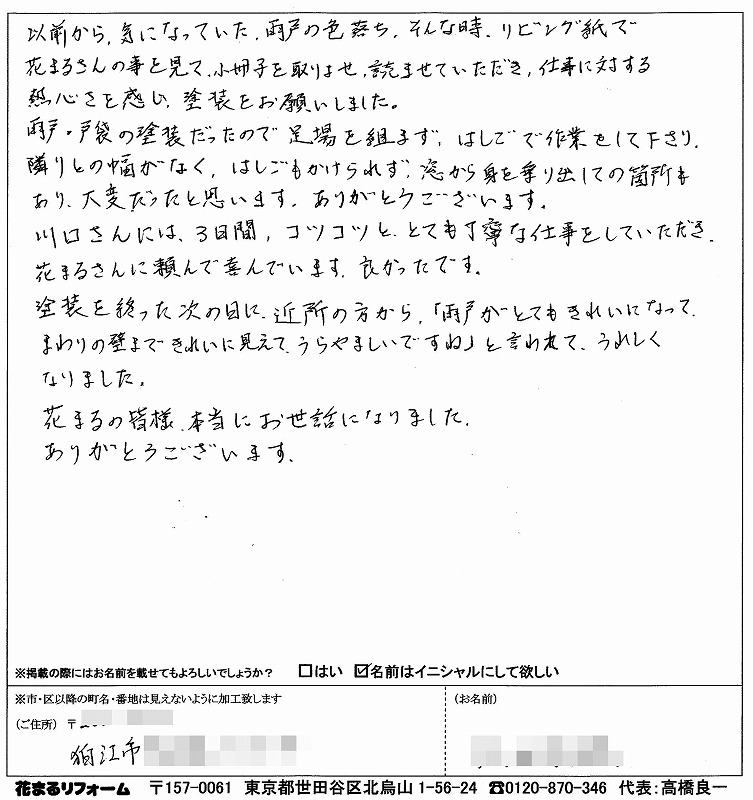 以前から、気になっていた、雨戸の色落ち。そんな時、リビング紙で
花まるさんの事を見て、小冊子を取りよせ、読ませていただき、仕事に対する
熱心さを感じ、塗装をお願いしました。
雨戸・戸袋の塗装だったので足場を組まず、はしごで作業をして下さり、
隣りとの幅がなく、はしごもかけられず、窓から身を乗り出しての箇所も
あり、大変だったと思います。ありがとうございます。
川口さんには、3日間、コツコツと、とても丁寧な仕事をしていただき、
花まるさんに頼んで喜んでいます。良かったです。
塗装を終った次の日に、近所の方から、「雨戸がとてもきれいになって、
まわりの壁まできれいに見えて、うらやましいですね」と言われて、うれしく
なりました。
花まるの皆様、本当にお世話になりました。
ありがとうございます。
※掲載の際にはお名前を載せてもよろしいでしょうか? □はい ☑名前はイニシャルにして欲しい
※市・区以降の町名・番地は見えないように加工致します (お名前)
(ご住所) 〒
狛江市
花まるリフォーム 〒157-0061 東京都世田谷区北烏山 1-56-24 ☎0120-870-346 代表:高橋良一